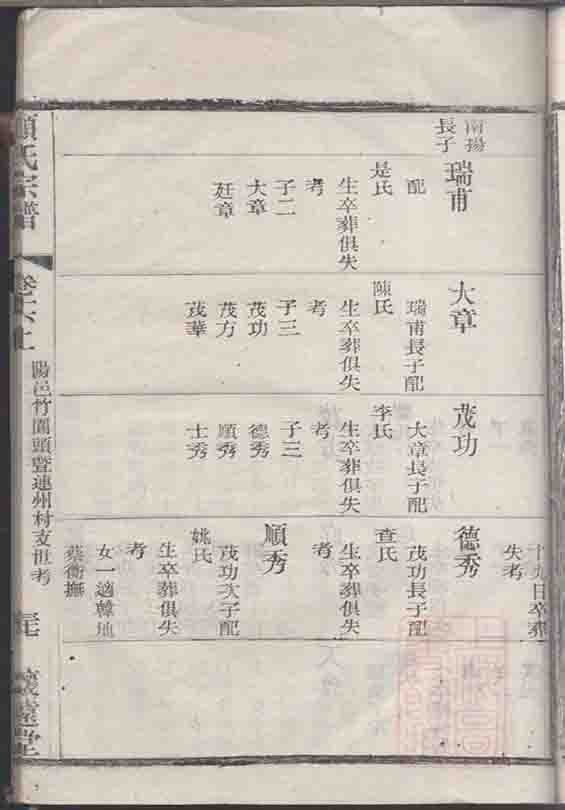 南揚
長子
瑞甫
配
是氏
生卒葬俱失
考
子二
大章
廷章
大章
瑞甫長子配
陳氏
生卒葬俱失
考
子三
茂功
茂方
茂華
茂功
大章長子配
李氏
生卒葬俱失
考
子三
德秀
順秀
士秀
十九日卒葬
失考
德秀
茂功長子配
查氏
生卒葬俱失
考
順秀
茂功次子配
姚氏
生卒葬俱失
考
女一適韓地
蔡衡撫
顧氏宗譜
卷六上
陽邑竹園頭暨連州村支世考